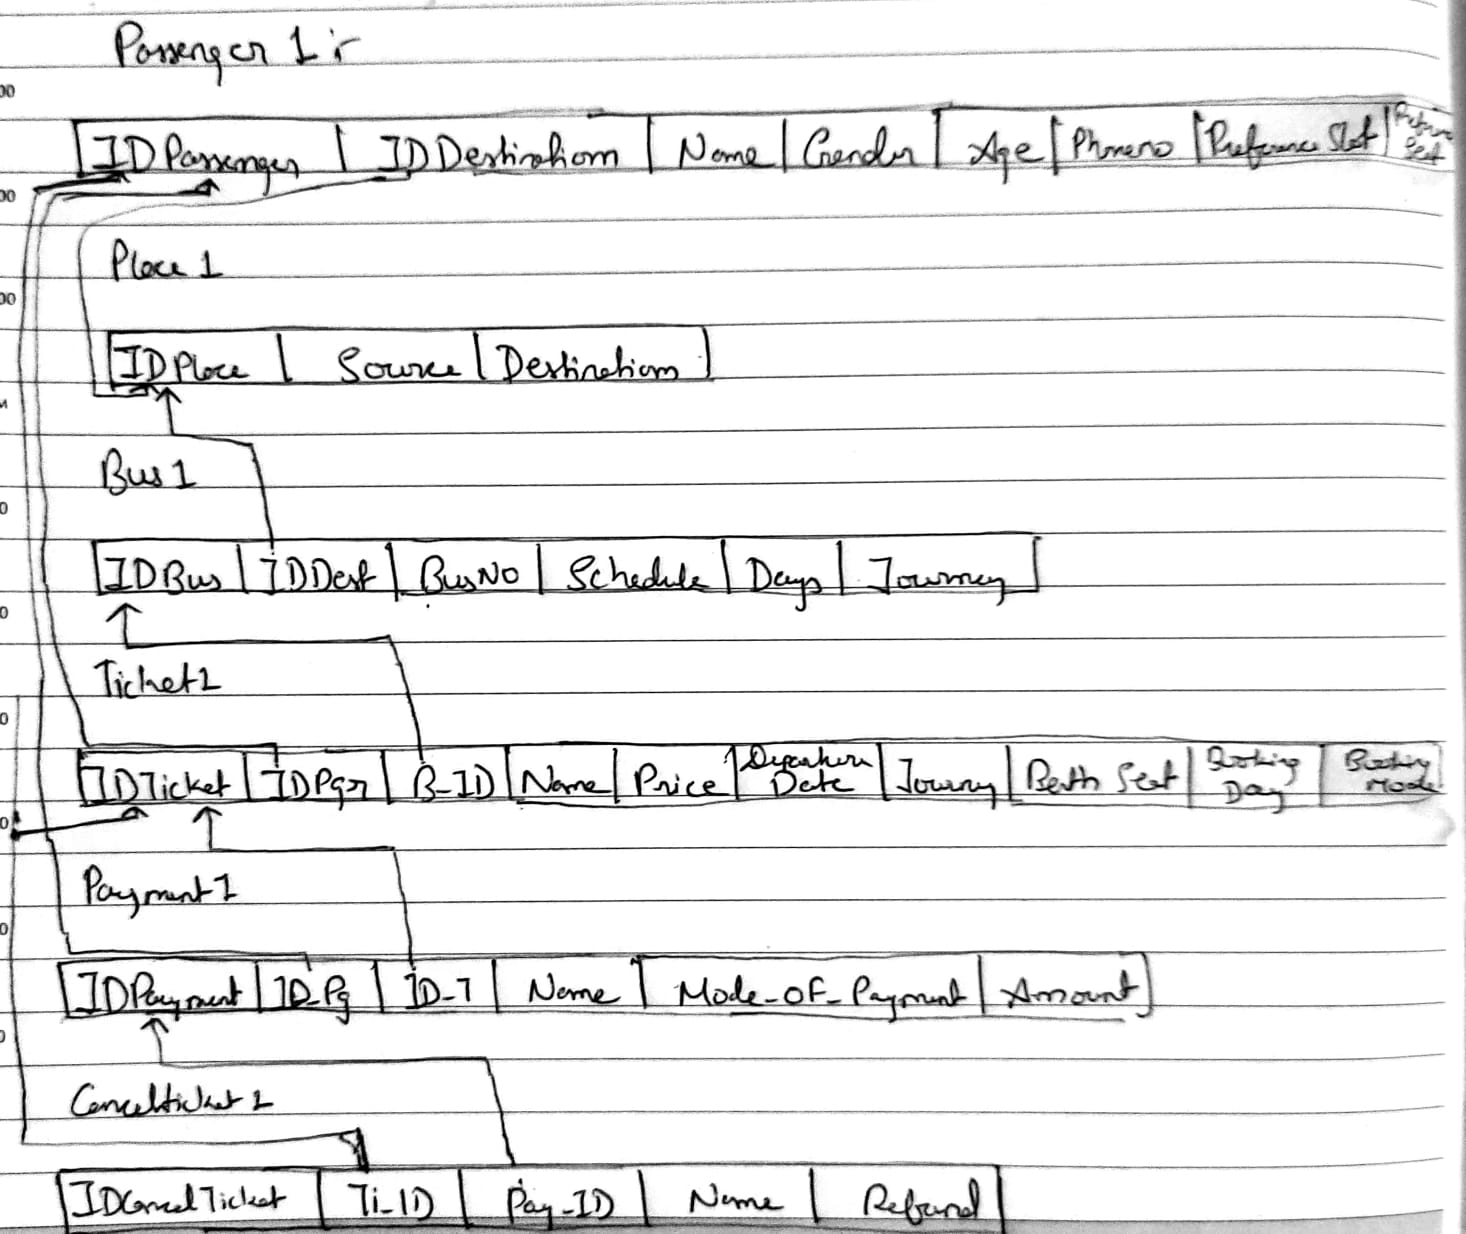 Passenger 1 :-
IDPassenger | IDDestination | Name | Gender | Age | Phoneno | Preference Slot | Seat
Place 1
IDPlace | Source | Destination
Bus 1
IDBus | IDDest | BusNO | Schedule | Days | Journey
Ticket1
IDTicket | IDPgr | B-ID | Name | Price | Departure Date | Journy | Berth Seat | Booking Day | Booking Mode
Payment1
IDPayment | ID-Pg | ID-T | Name | Mode-OF-Payment | Amount
Cancelticket 1
IDCancelTicket | Ti-ID | Pay-ID | Name | Refund